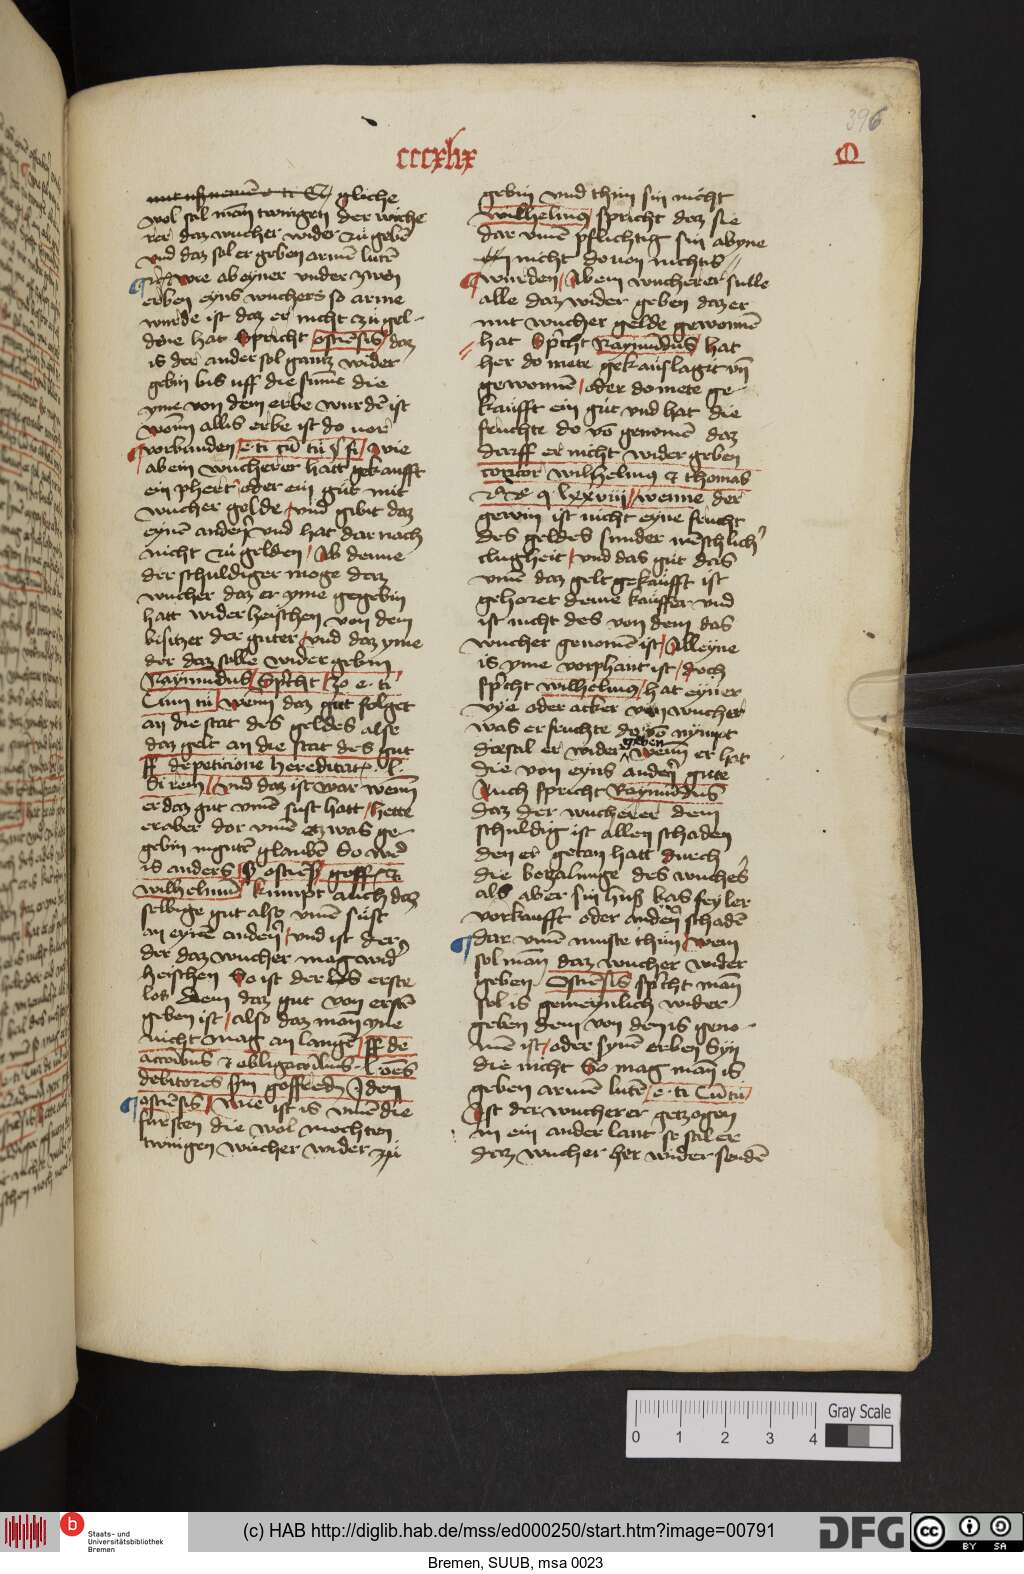 396
cccxlix
gliche
wol sal man twingen der wuche
rer daz wucher wider zu gebē
vnd daz sol er geben armē lutē
Wie ab eyner vnder zwen
erben eyns wuchers so arme
wurde ist daz er nicht czu gel-
dene hat Spricht ostiēsis daz
is der ander sol gantz wider
gebin bis uff die sūme die
yme von dem erbe wurdē ist
wenn allis erbe ist do vor
vorbunden e ti cū tu § si Wie
ab ein wucherer hatt gekaufft
ein phert oder ein gut mit
wucher gelde vnd gibt daz
eynē andern vnd hat dar nach
nicht zu gelden Ab denne
der schuldiger moge daz
wucher daz er yme gegebin
hatt wider heischen von dem
bisitzer der guter vnd daz yme
der daz sulle wider gebin
Raymundus Spricht zo e ti
Cum tu wenn daz gut folget
an die stat des geldes also
daz gelt an die stat des gut
ff de peticione hereditat L
Si rem vnd daz ist war wenn
er daz gut vmē sust hatt hette
er aber dor vmē etzwas ge-
gebin in gutē glaubē So wer
is anders ostiēs goff
wilhelmū kumpt auch daz
selbige gut also vmē sust
an eynē andern vnd ist der
der daz wucher mag wider
heischen So ist der erste
los Dem daz gut von erstē
geben ist also daz man yne
nicht mag an langē ff de
debitores goffred Idem
ostiēsis Wie ist is vmē die
fursten die wol mochten
twingen wucher wider zu
gebin vnd thun sin nicht
wilhelmus spricht daz sie
dar vmē pflichtig sin ab yne
nicht do von nichtis
wurden Ab ein wucherer sulle
alle daz wider geben daz er
mit wucher gelde gewonnē
hat Spricht Raymundus hat
her do mete gekauslagit vn
gewonnē oder do mete ge-
kaufft ein gut vnd hat die
fruchte do vō genomē daz
darff er nicht wider geben
wilhelmus thomas
lxxviii wenne der
gewin ist nicht eyne frucht
des geldes sunder menschlicher
clugheit vnd das gut das
vmē daz gelt gekaufft ist
gehoret deme kauffer vnd
ist nicht des von dem das
wucher genomē ist Alleyne
is yme vorphant ist doch
spricht wilhelmus hat eyner
vye oder acker von wucher
was er fruchte do vō nympt
die sal er wider geben wenn er hat
die von eyns andern gute
Auch spricht Raymūdus
daz der wucherer dem
schuldig ist allen schaden
den er getan hatt durch
die bezalunge des wuchers
als aber sin huß bas feyler
vorkaufft oder andern schadē
dar vmē muste thun wem
sol man daz wucher wider
geben Ostiēsis spricht man
sol is gemeynlich wider
geben dem von dem is geno-
mē ist oder synē erben Syn
die nicht So mag man is
geben armē lutē e ti Cū tu
Ist der wucherer getzogen
in ein ander lant so sal er
daz wucher her wider sendē
0 1 2 3 4
Gray Scale
b
Staats- und
Universitätsbibliothek
Bremen
(c) HAB http://diglib.hab.de/mss/ed000250/start.htm?image=00791
DFG
cc BY SA
Bremen, SUUB, msa 0023